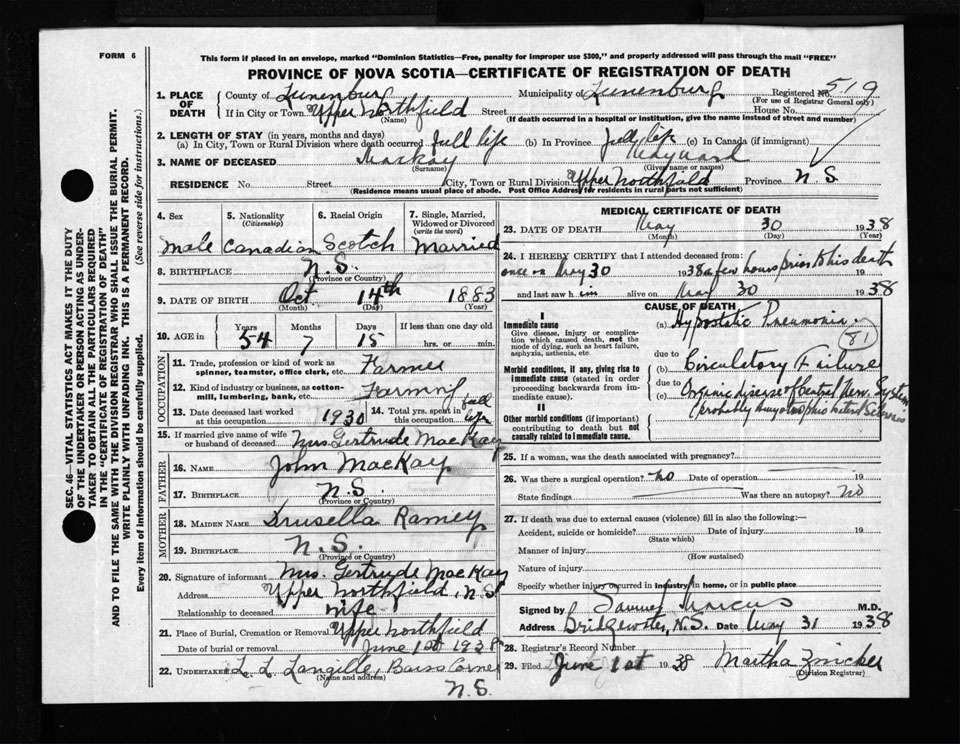 FORM 6
This form if placed in an envelope, marked "Dominion Statistics—Free, penalty for improper use $300," and properly addressed will pass through the mail "FREE"
PROVINCE OF NOVA SCOTIA—CERTIFICATE OF REGISTRATION OF DEATH
1. PLACE OF DEATH
County of Lunenburg Municipality of Lunenburg Registered No. 519
(For use of Registrar General only)
If in City or Town Upper Northfield Street House No.
(Name) (If death occurred in a hospital or institution, give the name instead of street and number)
2. LENGTH OF STAY (in years, months and days)
(a) In City, Town or Rural Division where death occurred full life (b) In Province full life (c) In Canada (if immigrant)
3. NAME OF DECEASED MacKay Maynard
(Surname) (Given name or names)
RESIDENCE No. Street City, Town or Rural Division Upper Northfield Province N.S.
(Residence means usual place of abode. Post Office Address for residents in rural parts not sufficient)
4. Sex Male
5. Nationality (Citizenship) Canadian
6. Racial Origin Scotch
7. Single, Married, Widowed or Divorced (write the word) Married
8. BIRTHPLACE N.S.
(Province or Country)
9. DATE OF BIRTH Oct 14th 1883
(Month) (Day) (Year)
10. AGE in Years Months Days If less than one day old
54 7 15 hrs. or min.
OCCUPATION
11. Trade, profession or kind of work as spinner, teamster, office clerk, etc. Farmer
12. Kind of industry or business, as cotton-mill, lumbering, bank, etc. Farming
13. Date deceased last worked at this occupation 1930
14. Total yrs. spent in this occupation full life
15. If married give name of wife or husband of deceased Mrs Gertrude MacKay
FATHER
16. NAME John MacKay
17. BIRTHPLACE N.S.
(Province or Country)
MOTHER
18. MAIDEN NAME Drusella Ramey
19. BIRTHPLACE N.S.
(Province or Country)
20. Signature of informant Mrs. Gertrude MacKay
Address Upper Northfield, N.S
Relationship to deceased wife
21. Place of Burial, Cremation or Removal Upper Northfield
Date of burial or removal June 1st 1938
22. UNDERTAKER L. L. Langille, Barss Corner
(Name and address)
N.S.
MEDICAL CERTIFICATE OF DEATH
23. DATE OF DEATH May 30 1938
(Month) (Day) (Year)
24. I HEREBY CERTIFY that I attended deceased from:
once on May 30 1938 a few hours prior to his death 19
and last saw him alive on May 30 1938
CAUSE OF DEATH
I
Immediate cause
Give disease, injury or complication which caused death, not the mode of dying, such as heart failure, asphyxia, asthenia, etc
(a) Hypostatic Pneumonia
81
due to
Morbid conditions, if any, giving rise to immediate cause (stated in order proceeding backwards from immediate cause).
(b) Circulatory Failure
due to
(c) Organic disease of Central Nerv. System
(probably Amyotrophic lateral Sclerosis
II
Other morbid conditions (if important) contributing to death but not causally related to immediate cause.
25. If a woman, was the death associated with pregnancy?
26. Was there a surgical operation? no Date of operation 19
State findings Was there an autopsy? no
27. If death was due to external causes (violence) fill in also the following:—
Accident, suicide or homicide? Date of injury 19
(State which)
Manner of injury
(How sustained)
Nature of injury
Specify whether injury occurred in industry, in home, or in public place
Signed by Samuel Marcus M.D.
Address Bridgewater, N.S. Date May 31 1938
28. Registrar's Record Number
29. Filed June 1st 1938 Martha Zwicker
(Division Registrar)
SEC. 46—VITAL STATISTICS ACT MAKES IT THE DUTY
OF THE UNDERTAKER OR PERSON ACTING AS UNDERTAKER TO OBTAIN ALL THE PARTICULARS REQUIRED
IN THE "CERTIFICATE OF REGISTRATION OF DEATH"
AND TO FILE THE SAME WITH THE DIVISION REGISTRAR WHO SHALL ISSUE THE BURIAL PERMIT.
WRITE PLAINLY WITH UNFADING INK. THIS IS A PERMANENT RECORD.
Every item of information should be carefully supplied. (See reverse side for instructions.)